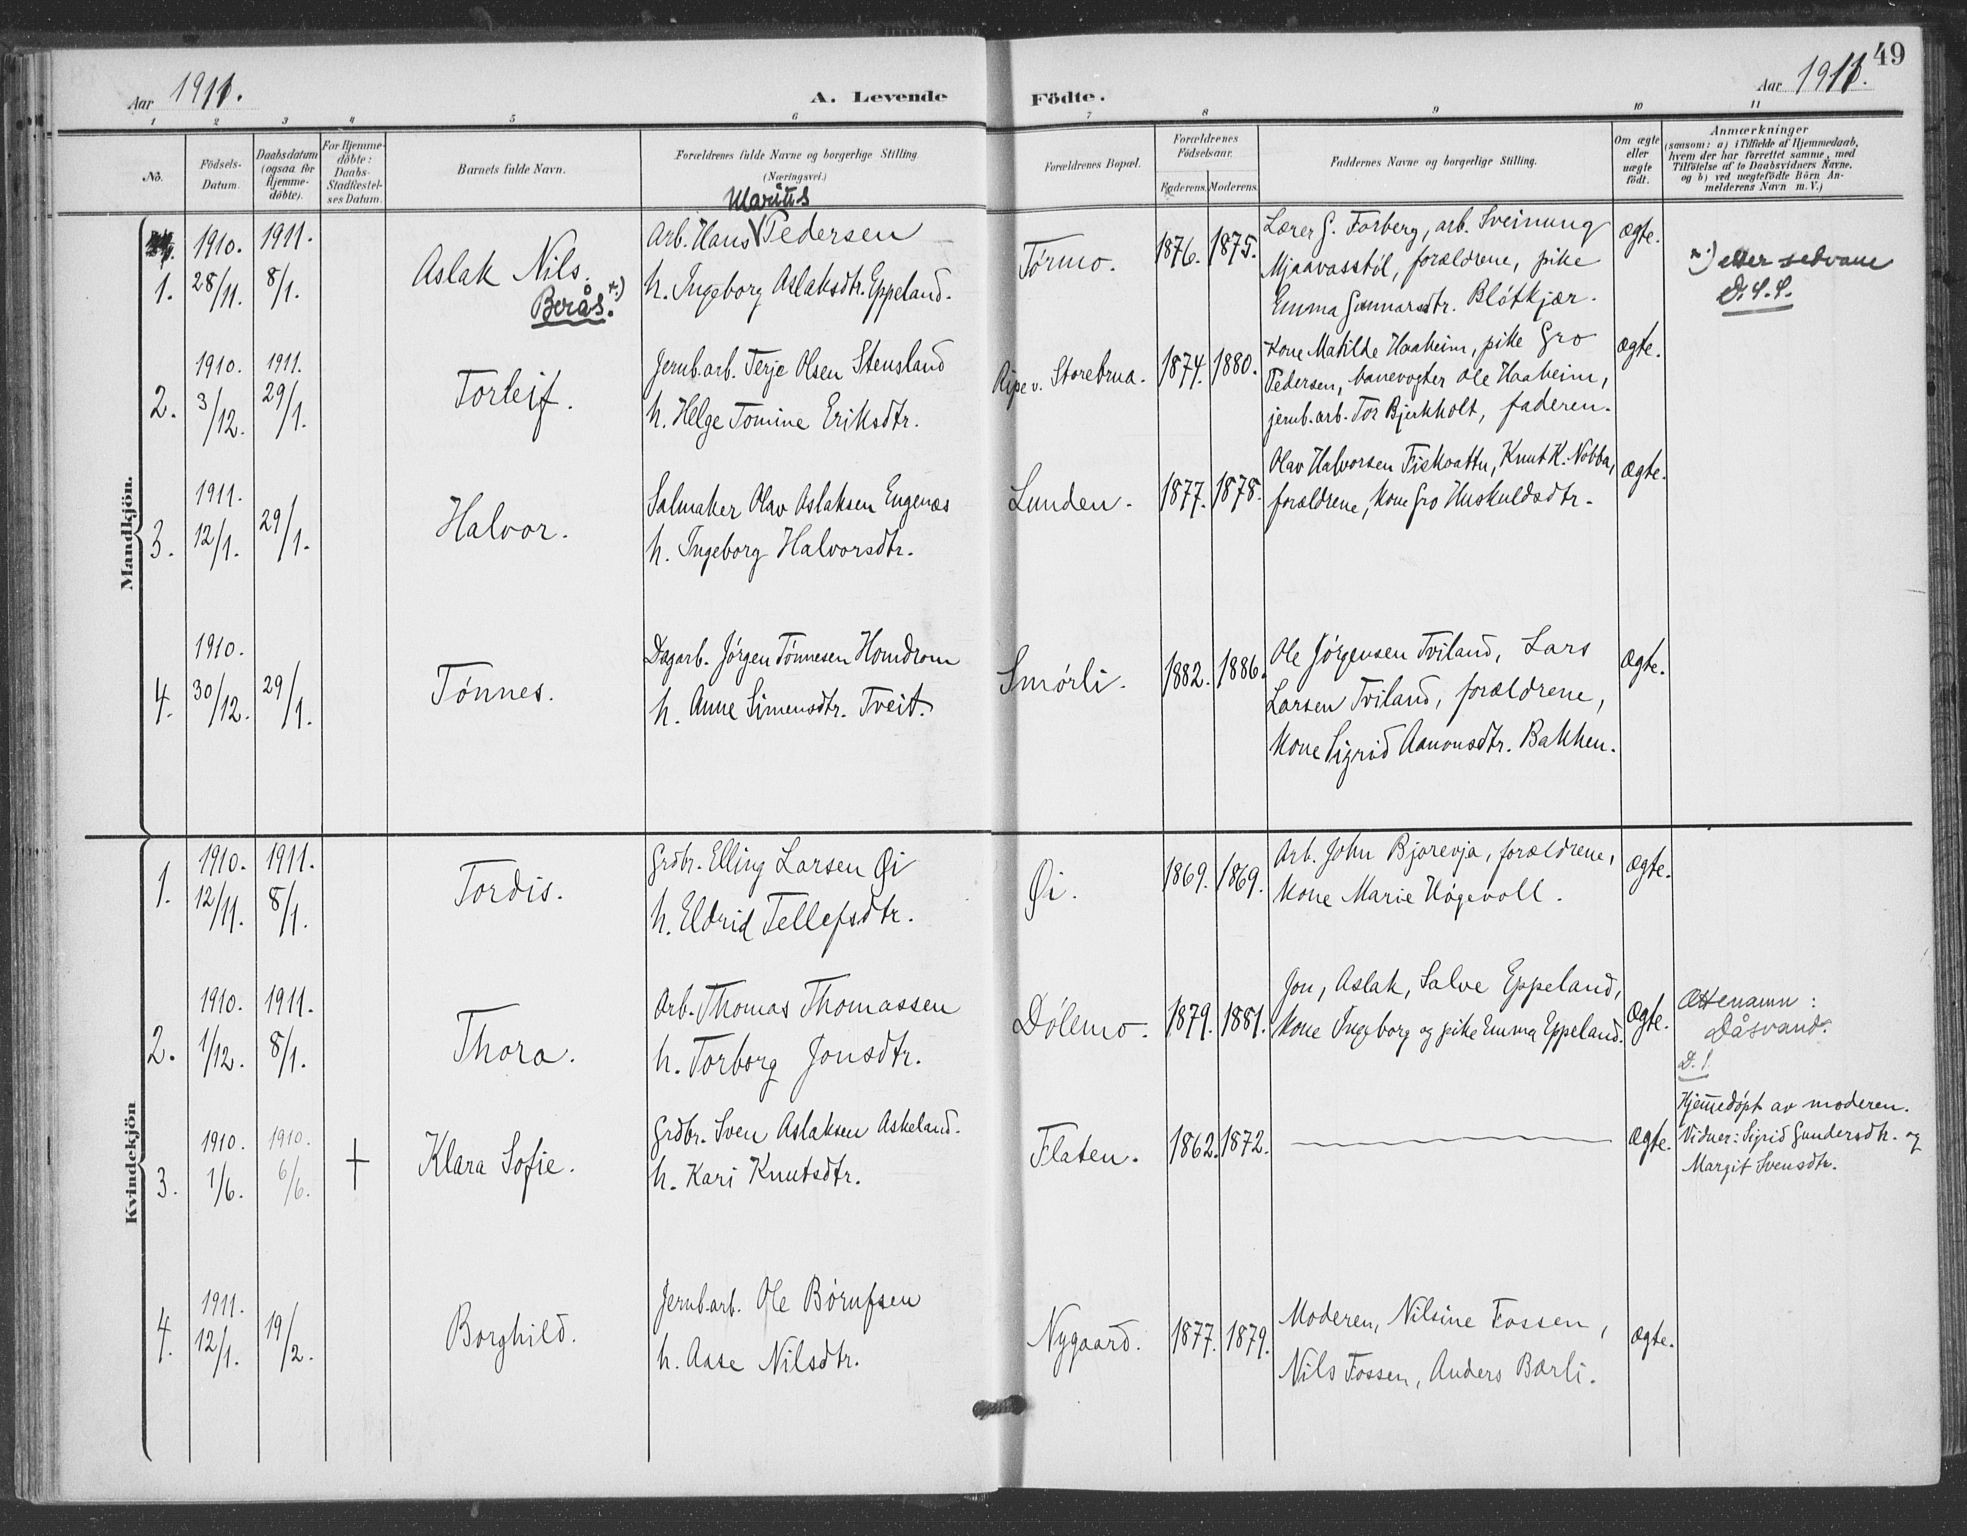 49
Aar 1911.
A. Levende
Födte.
Aar 1911.
1 2 3 4 5 6 7 8 9 10 11
No.
Födsels-
Datum.
Daabsdatum
(ogsaa for
Hjemme-
döbte).
For Hjemme-
döbte:
Daabs-
Stadfæstel-
ses Datum.
Barnets fulde Navn.
Forældrenes fulde Navne og borgerlige Stilling
(Næringsvei.)
Forældrenes Bopæl.
Forældrenes
Födselsaar.
Faderens. Moderens.
Faddernes Navne og borgerlige Stilling.
Om ægte
eller
uægte
födt.
Anmærkninger
(saasom: a) i Tilfælde af Hjemmedaab,
hvem der har forrettet samme, med
Tilföielse af to Daabsvidners Navne,
og b) ved uægtefödte Börn An-
melderens Navn m. V.)
Mandkjön.
1.
1910.
28/11.
1911.
8/1.
Aslak Nils.
Berås. x)
Marius
Arb. Hans V Pedersen
h. Ingeborg Aslaksdtr. Eppeland.
Tørmo.
1876. 1875.
Lærer G. Forberg, arb. Sveinung
Mjaavasstøl, forældrene, pike
Emma Gunnarsdtr. Bløtkjær.
Ægte.
x) etter sedvane
D. S. S.
2.
1910.
3/12.
1911.
29/1.
Torleif.
Jernb.arb. Terje Olsen Stensland
h. Helge Tomine Eriksdtr.
Ripe v. Storebrua.
1874. 1880.
Kone Matilde Haaheim, pike Gro
Pedersen, banevogter Ole Haaheim,
jernb.arb. Tor Bjerkholt, faderen.
Ægte.
3.
1911.
12/1.
29/1.
Halvor.
Salmaker Olav Aslaksen Engenæs
h. Ingeborg Halvorsdtr.
Lunden.
1877. 1878.
Olav Halvorsen Fiskvattn, Knut K. Nobba,
forældrene, kone Gro Huskuldsdtr.
Ægte.
4.
1910.
30/12.
29/1.
Tønnes.
Dagarb. Jørgen Tønnesen Homdrom
h. Anne Simensdtr. Tveit.
Smørli.
1882. 1886.
Ole Jørgensen Tviland, Lars
Larsen Tviland, forældrene,
kone Sigrid Aanonsdtr. Bakken.
Ægte.
Kvindekjön
1.
1910.
12/11.
1911.
8/1.
Tordis.
Grdbr. Elling Larsen Øi
h. Eldrid Tellefsdtr.
Øi.
1869. 1869.
Arb. John Bjorevja, forældrene,
kone Marie Høgevoll.
Ægte.
2.
1910.
1/12.
1911.
8/1.
Thora.
Arb. Thomas Thomassen
h. Torborg Jonsdtr.
Dølemo.
1879. 1881.
Jon, Aslak, Salve Eppeland,
kone Ingeborg og pike Emma Eppeland.
Ægte.
Ættenamn:
Dåsvand.
D. S.
3.
1910.
1/6.
1910.
6/6.
Klara Sofie.
Grdbr. Sven Aslaksen Askeland.
h. Kari Knutsdtr.
Flaten.
1862. 1872.
Ægte.
Hjemmedøpt av moderen.
Vidner: Sigrid Gundersdtr. og
Margit Svensdtr.
4.
1911.
12/1.
19/2.
Borghild.
Jernb.arb. Ole Børufsen
h. Aase Nilsdtr.
Nygaard.
1877. 1879.
Moderen, Nilsine Fossen,
Nils Fossen, Anders Barli.
Ægte.